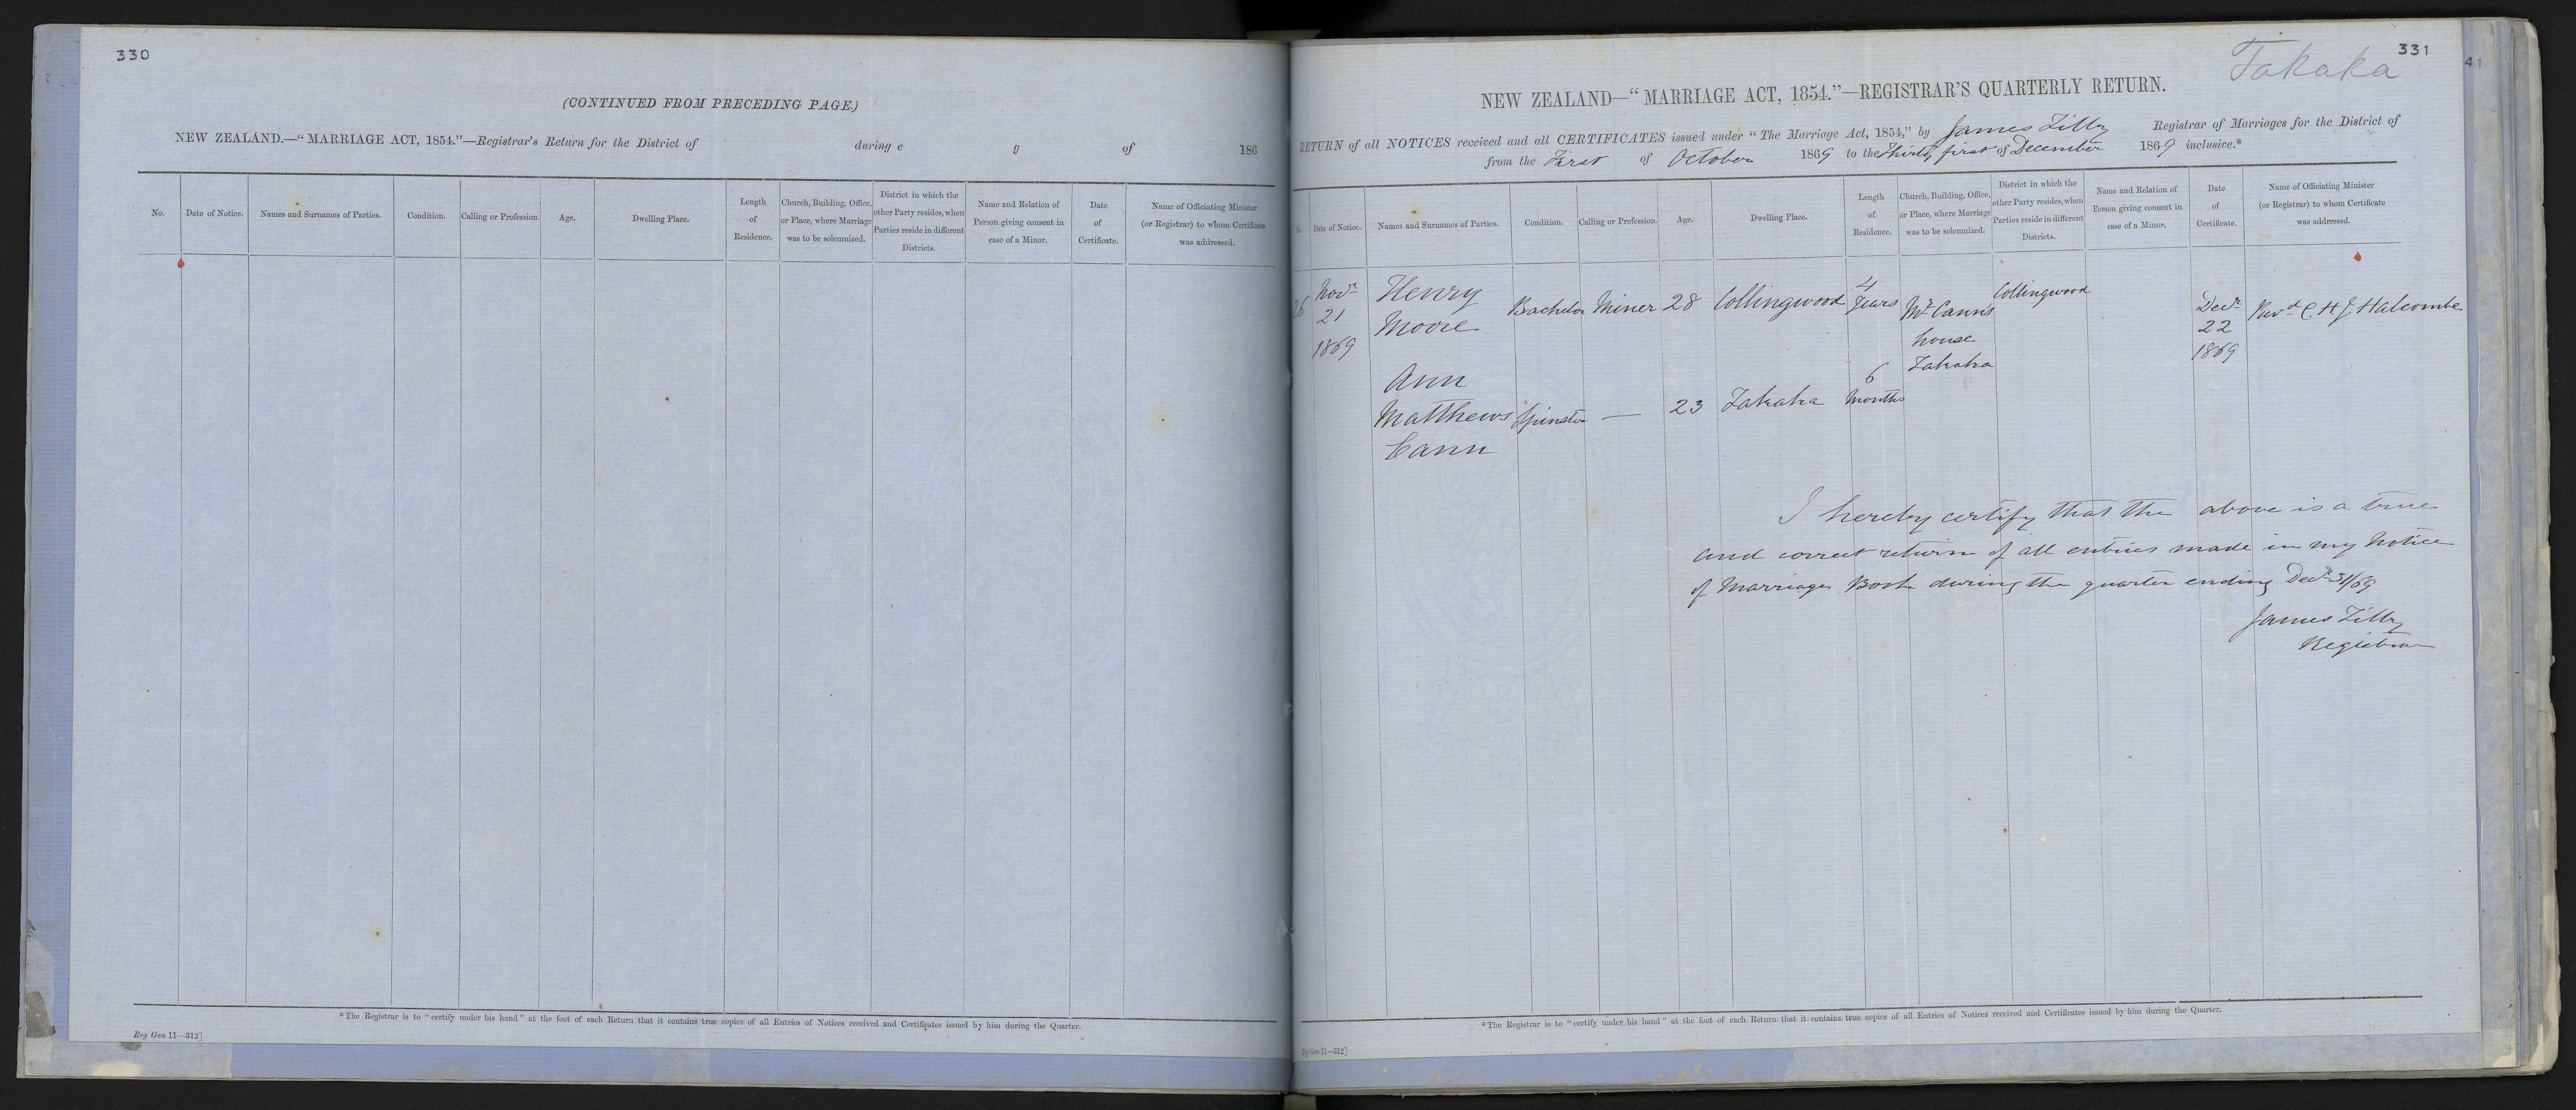 330
(CONTINUED FROM PRECEDING PAGE.)
NEW ZEALAND.—“MARRIAGE ACT, 1854.”—Registrar's Return for the District of during e g of 186
No. Date of Notice. Names and Surnames of Parties. Condition. Calling or Profession. Age. Dwelling Place. Length of Residence. Church, Building, Office, or Place, where Marriage was to be solemnized. District in which the other Party resides, when Parties reside in different Districts. Name and Relation of Person giving consent in case of a Minor. Date of Certificate. Name of Officiating Minister (or Registrar) to whom Certificate was addressed.
*The Registrar is to “certify under his hand” at the foot of each Return that it contains true copies of all Entries of Notices received and Certificates issued by him during the Quarter.
Reg Gen 11—312]
331
41
Takaka
NEW ZEALAND—“MARRIAGE ACT, 1854.”—REGISTRAR'S QUARTERLY RETURN.
RETURN of all NOTICES received and all CERTIFICATES issued under “The Marriage Act, 1854,” by James Tilly Registrar of Marriages for the District of
from the First of October 1869 to the Thirty first of December 1869 inclusive.*
Date of Notice. Names and Surnames of Parties. Condition. Calling or Profession. Age. Dwelling Place. Length of Residence. Church, Building, Office, or Place, where Marriage was to be solemnized. District in which the other Party resides, when Parties reside in different Districts. Name and Relation of Person giving consent in case of a Minor. Date of Certificate. Name of Officiating Minister (or Registrar) to whom Certificate was addressed.
26 Novr 21 1869 Henry Moore Bachelor Miner 28 Collingwood 4 Years Mr Cann's house Takaka Collingwood Decr 22 1869 Revd C H J Halcombe
Ann Matthews Cann Spinster — 23 Takaka 6 Months
I hereby certify that the above is a true
and correct return of all entries made in my Notice
of Marriages Book during the quarter ending Decr 31/69
James Tilly
Registrar
*The Registrar is to “certify under his hand” at the foot of each Return that it contains true copies of all Entries of Notices received and Certificates issued by him during the Quarter.
Gen 11—312]